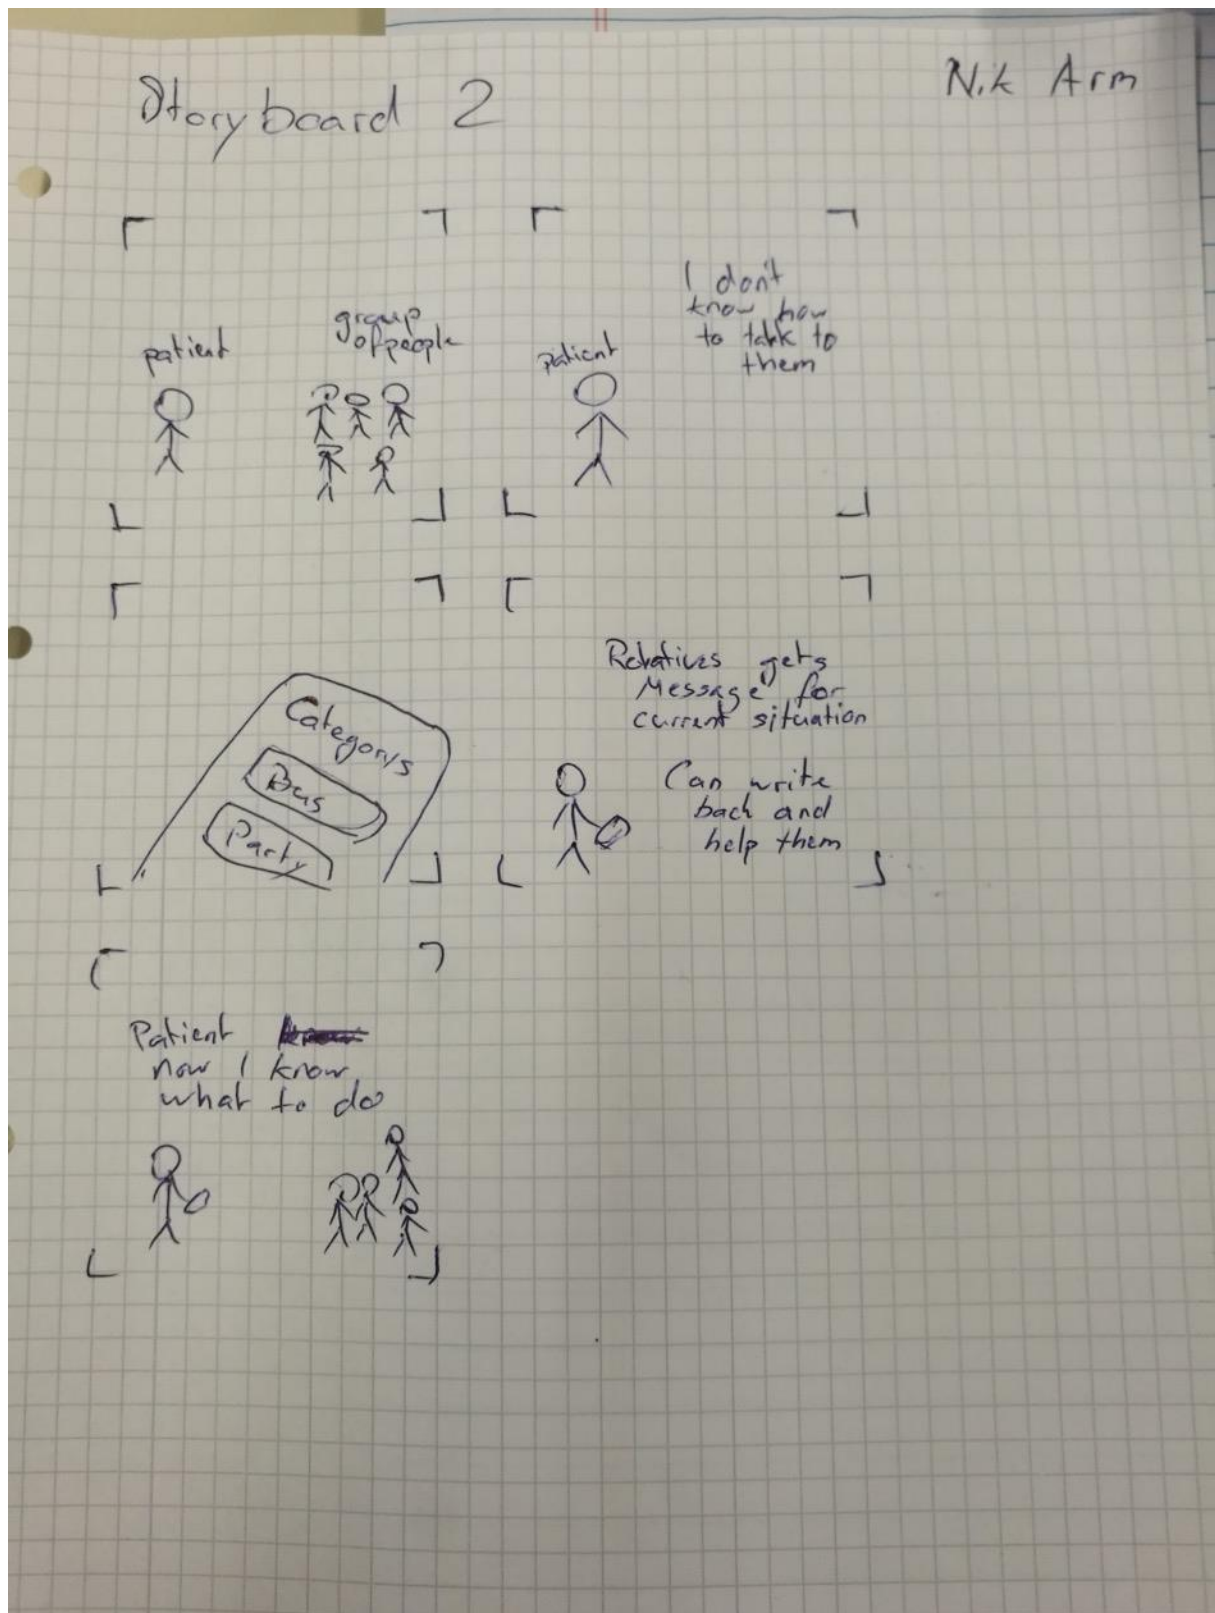 Storyboard 2
Nik Arm
patient
group
of people
patient
I don't
know how
to talk to
them
Categoris
Bus
Party
Relatives gets
Message for
current situation
Can write
back and
help them
Patient
now I know
what to do